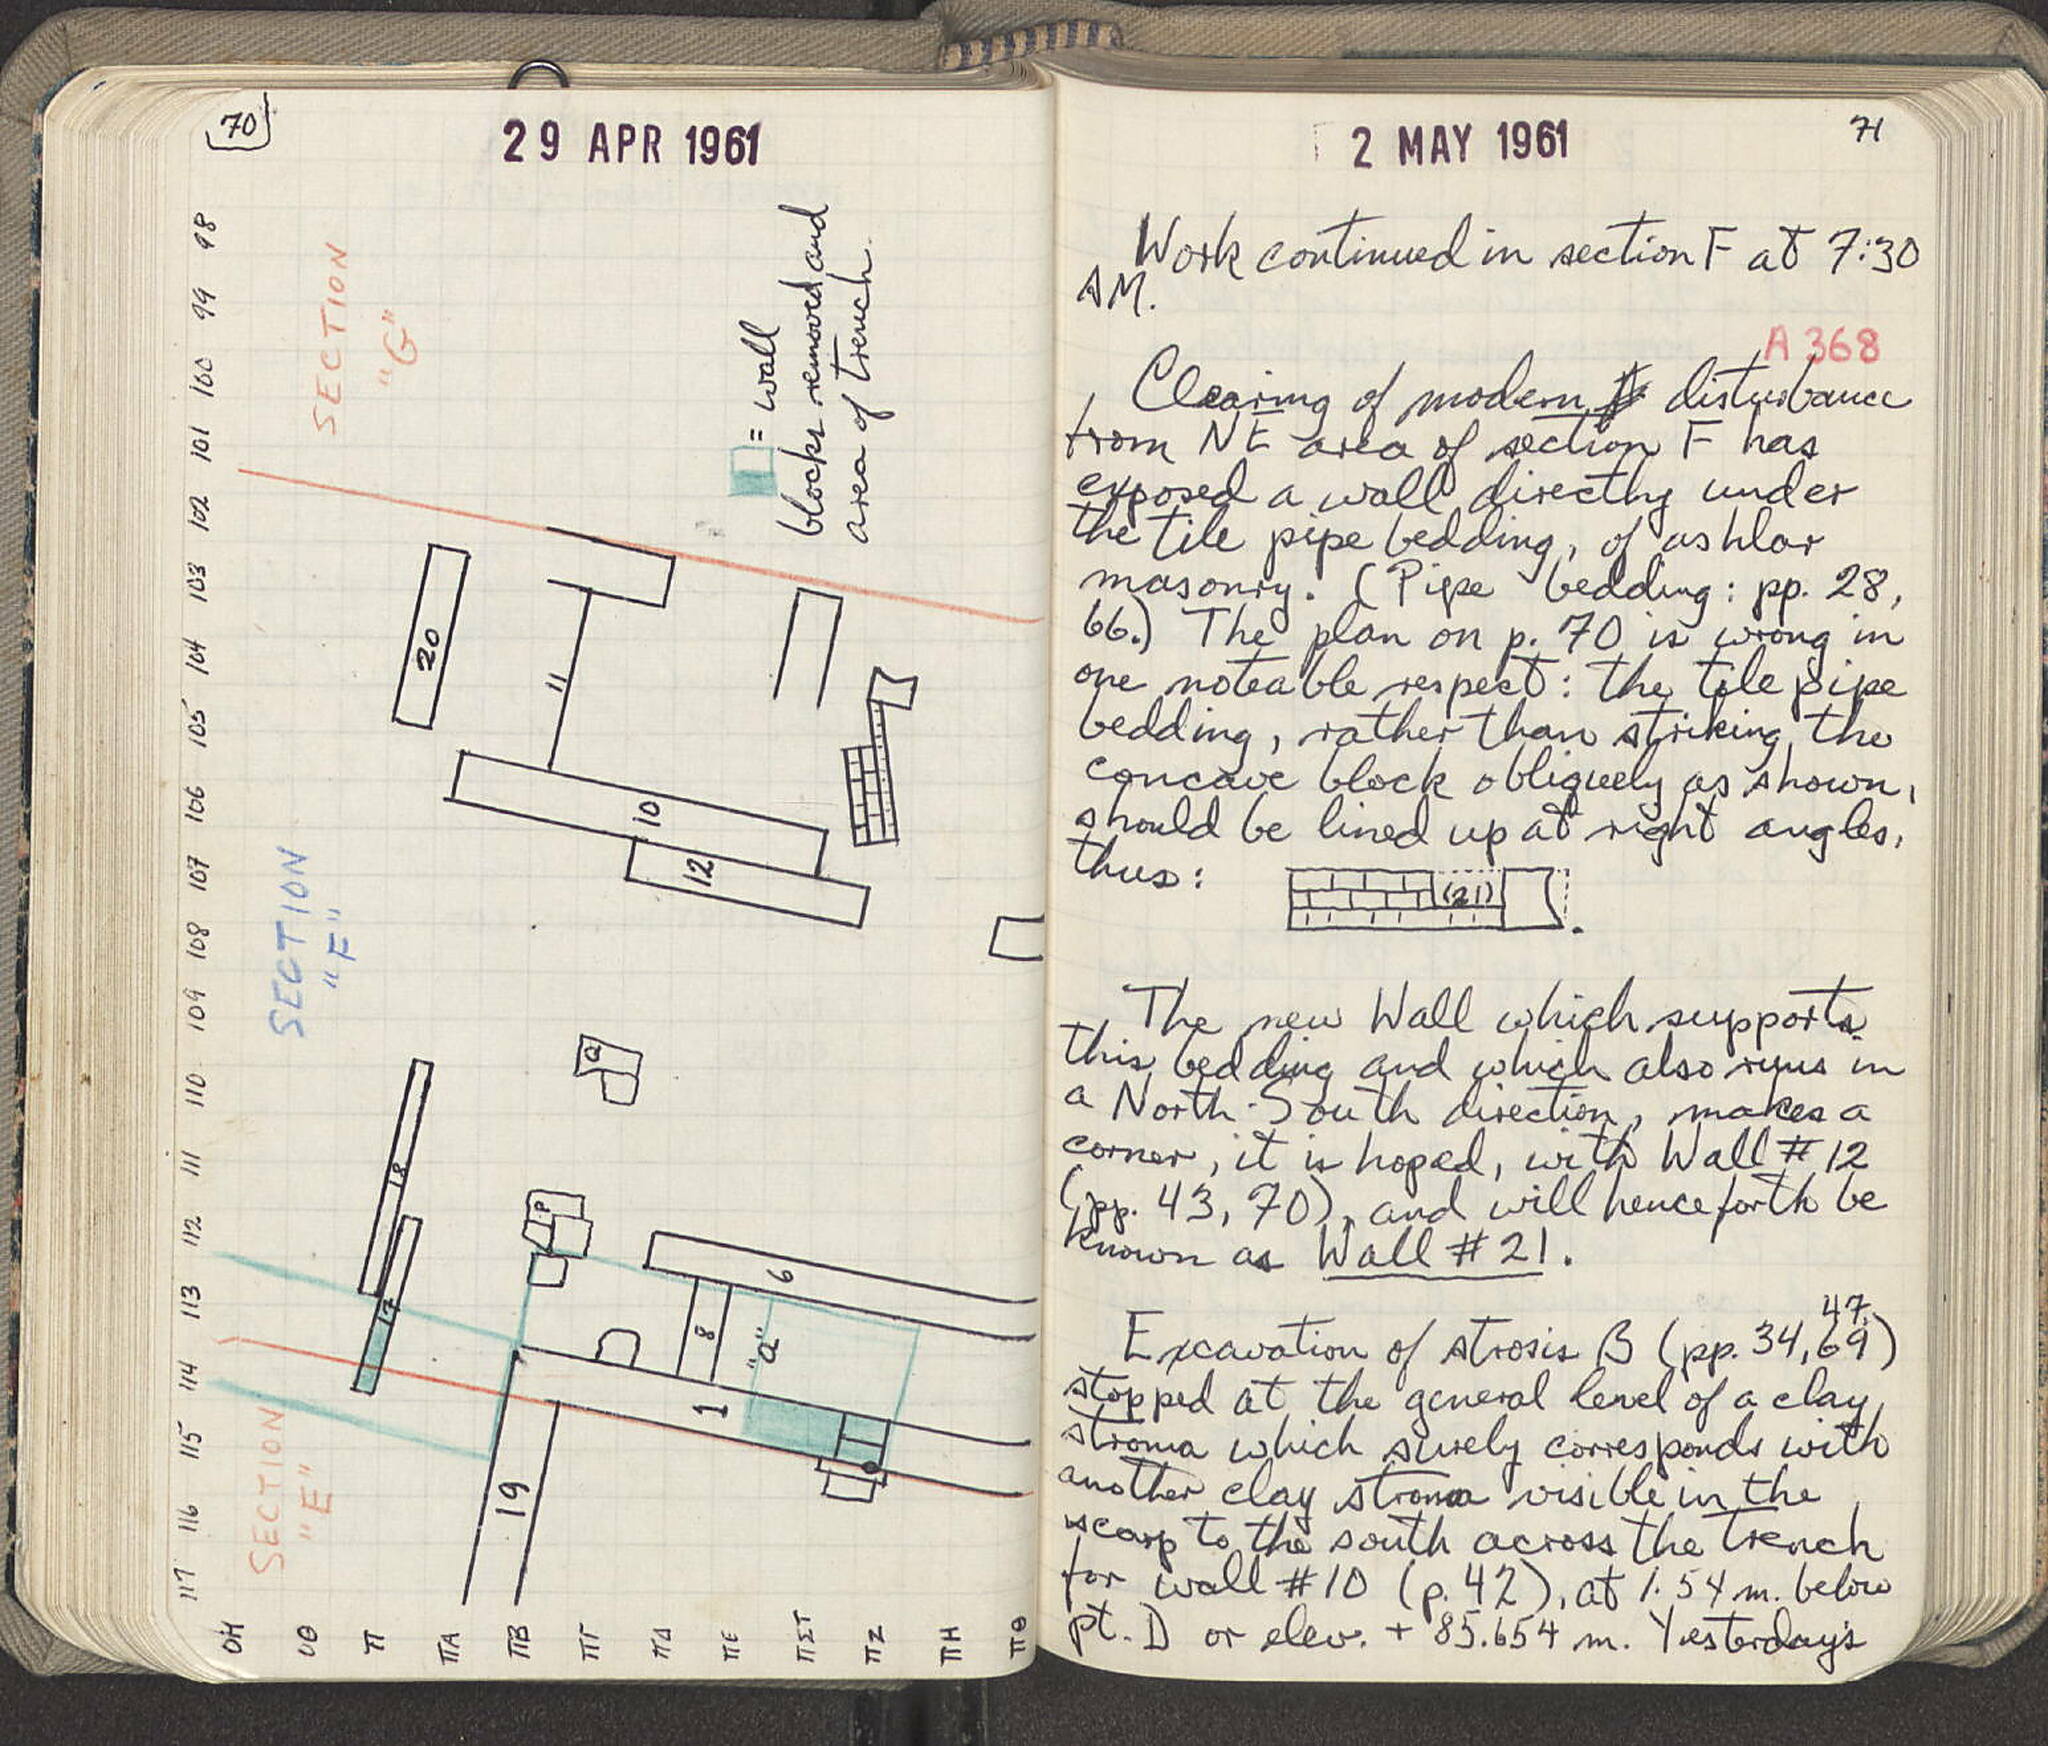 70
29 APR 1961
98
99
100
101
102
103
104
105
106
107
108
109
110
111
112
113
114
115
116
117
SECTION
"G"
SECTION
"F"
SECTION
"E"
= wall
blocks removed and
area of trench.
20
11
10
12
a
18
17
P
6
8
"a"
1
19
ΟΗ
ΟΘ
Π
ΠΑ
ΠΒ
ΠΓ
ΠΔ
ΠΕ
ΠΣΤ
ΠΖ
ΠΗ
ΠΘ
2 MAY 1961
71
Work continued in section F at 7:30
AM.
A 368
Clearing of modern disturbance
from NE area of section F has
exposed a wall directly under
the tile pipe bedding, of ashlar
masonry. (Pipe bedding: pp. 28,
66.) The plan on p. 70 is wrong in
one noteable respect: the tile pipe
bedding, rather than striking the
concave block obliquely as shown,
should be lined up at right angles,
thus:
(21)
The new Wall which supports
this bedding and which also runs in
a North-South direction, makes a
corner, it is hoped, with Wall # 12
(pp. 43, 70), and will henceforth be
known as Wall # 21.
47,
Excavation of strosis B (pp. 34, 69)
stopped at the general level of a clay
stroma which surely corresponds with
another clay stroma visible in the
scarp to the south across the trench
for wall # 10 (p. 42), at 1.54 m. below
pt. D or elev. + 85.654 m. Yesterday's